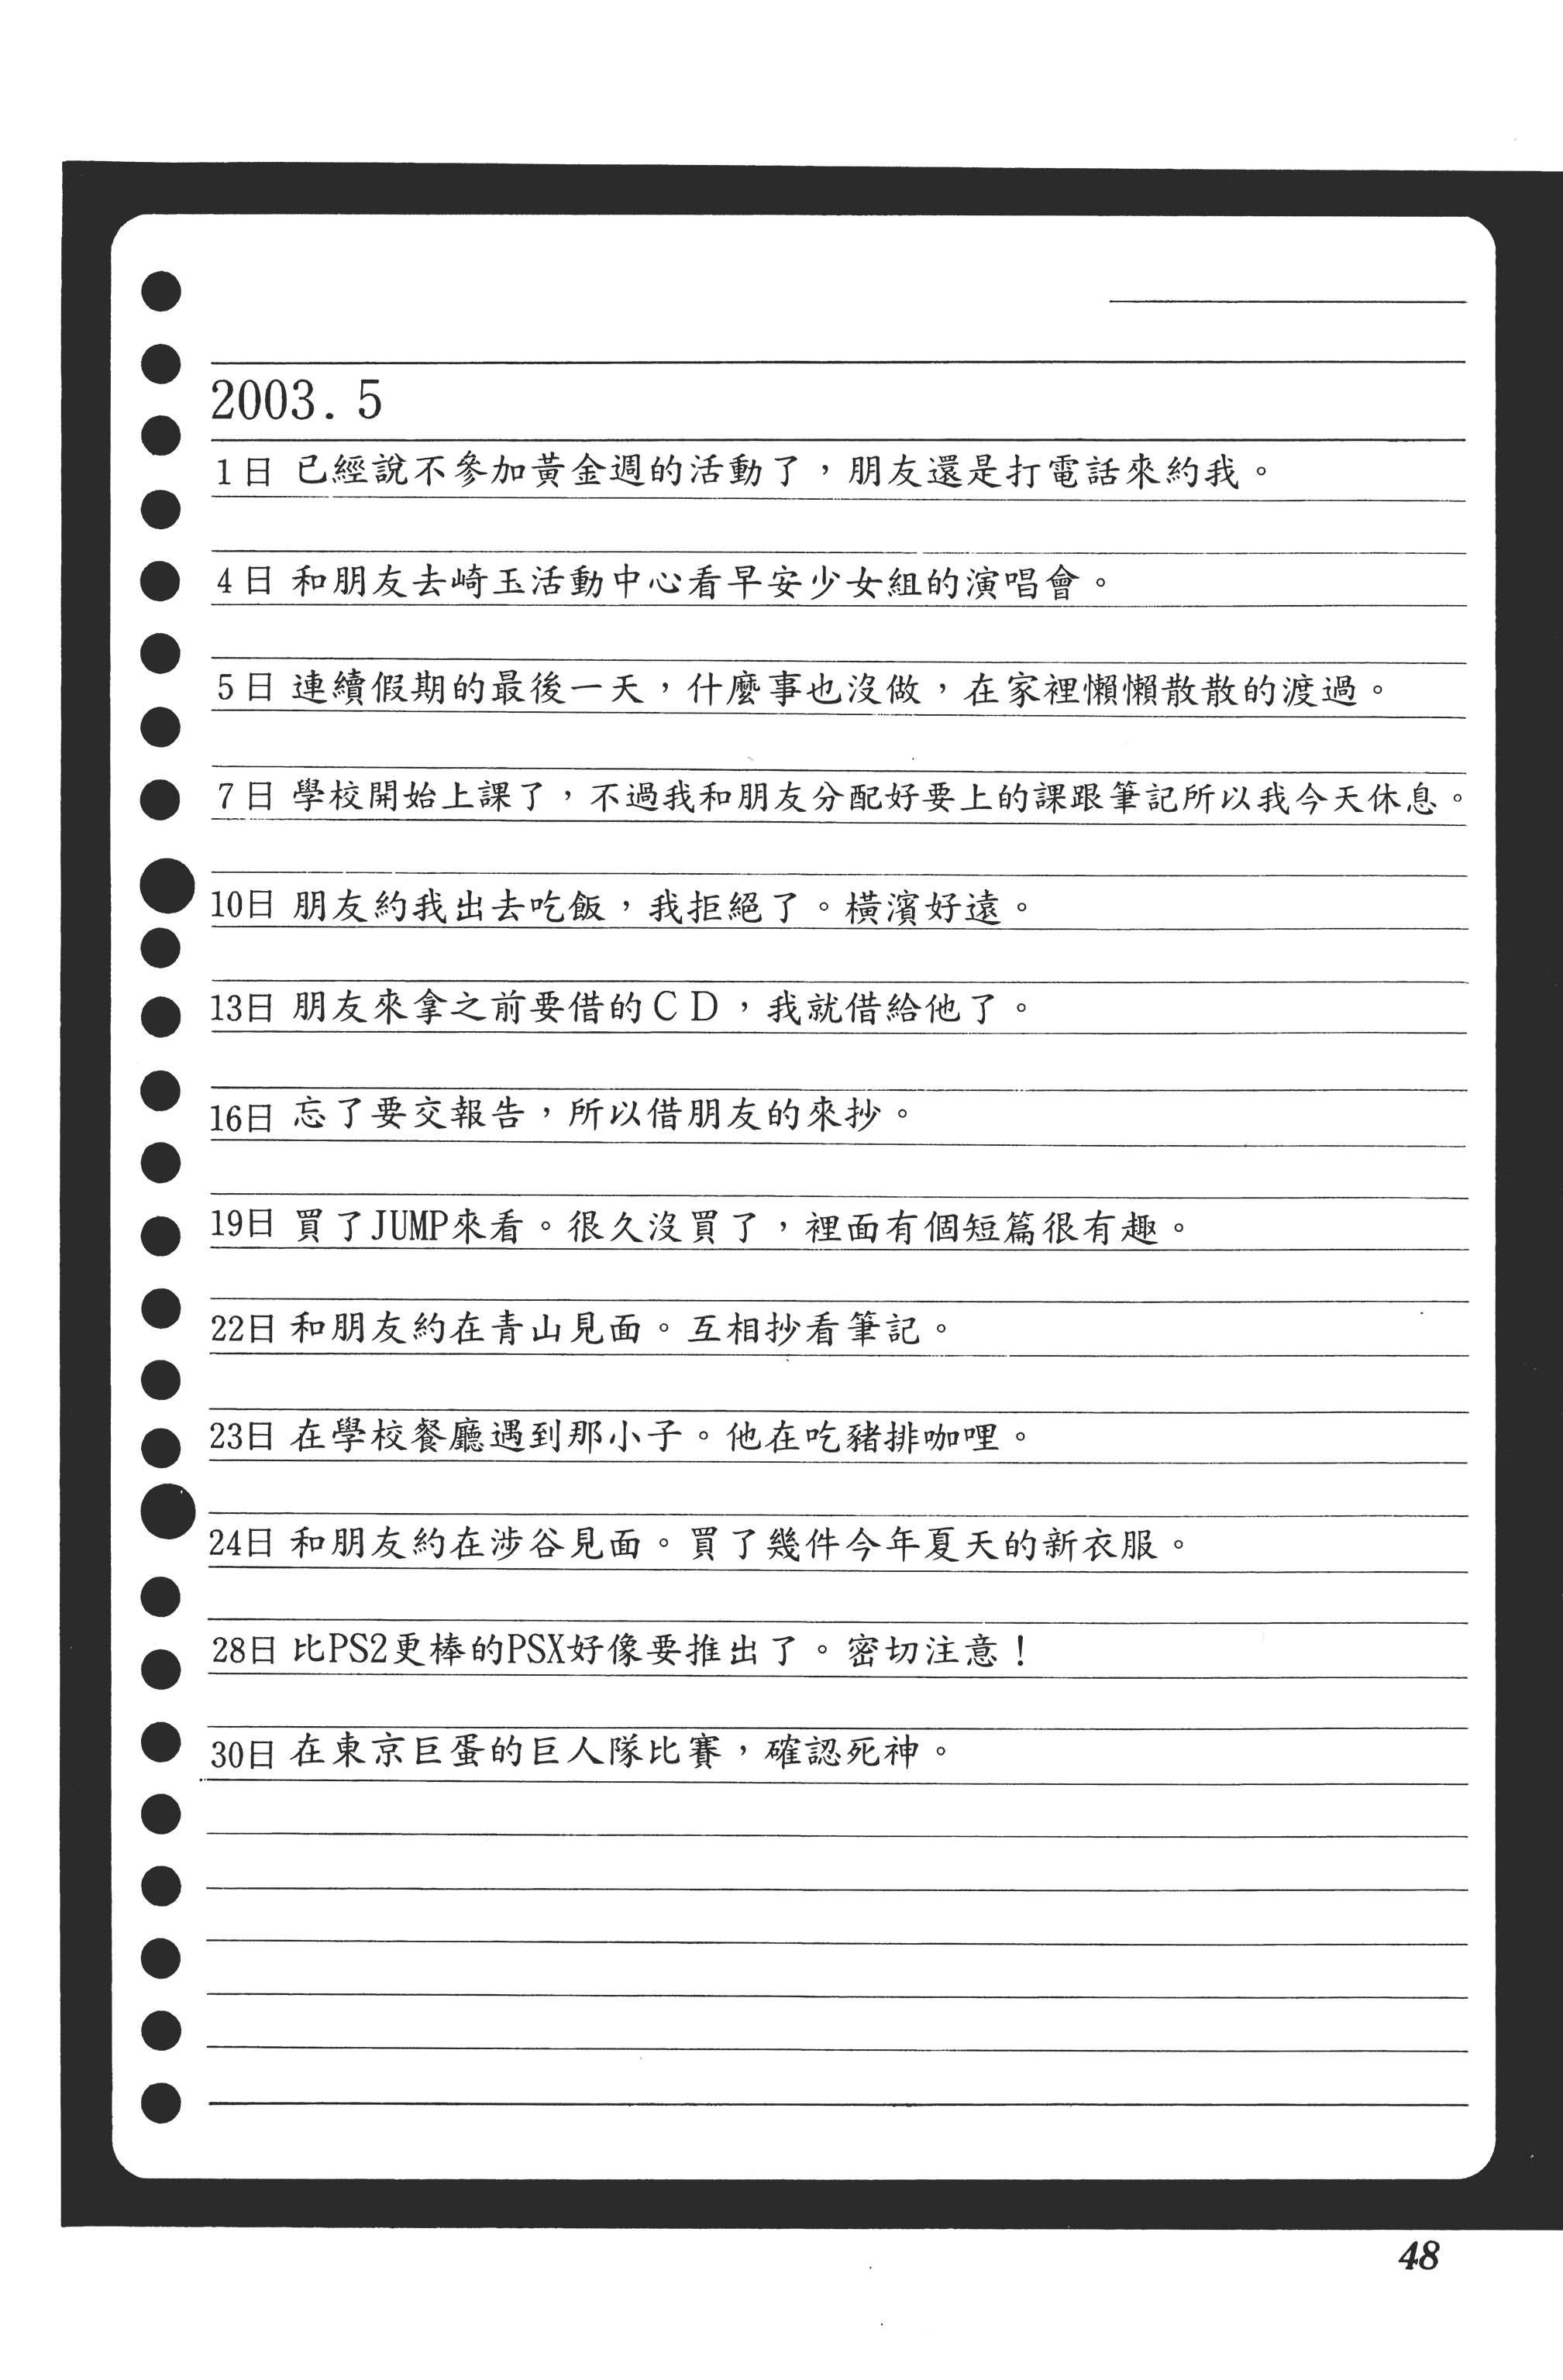 2003. 5
1日 已經說不參加黃金週的活動了，朋友還是打電話來約我。
4日 和朋友去崎玉活動中心看早安少女組的演唱會。
5日 連續假期的最後一天，什麼事也沒做，在家裡懶懶散散的渡過。
7日 學校開始上課了，不過我和朋友分配好要上的課跟筆記所以我今天休息。
10日 朋友約我出去吃飯，我拒絕了。橫濱好遠。
13日 朋友來拿之前要借的ＣＤ，我就借給他了。
16日 忘了要交報告，所以借朋友的來抄。
19日 買了JUMP來看。很久沒買了，裡面有個短篇很有趣。
22日 和朋友約在青山見面。互相抄看筆記。
23日 在學校餐廳遇到那小子。他在吃豬排咖哩。
24日 和朋友約在涉谷見面。買了幾件今年夏天的新衣服。
28日 比PS2更棒的PSX好像要推出了。密切注意！
30日 在東京巨蛋的巨人隊比賽，確認死神。
48